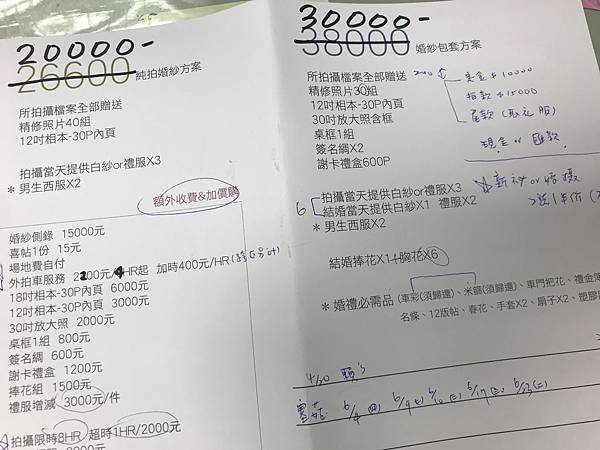 20000-
26600 純拍婚紗方案
所拍攝檔案全部贈送
精修照片40組
12吋相本-30P內頁
拍攝當天提供白紗or禮服X3
* 男生西服X2
額外收費&加價購
婚紗側錄 15000元
喜帖1份 15元
場地費自付
外拍車服務 2400元/4HR起 加時400元/HR
18吋相本-30P內頁 6000元
12吋相本-30P內頁 3000元
30吋放大照 2000元
桌框1組 800元
簽名綢 600元
謝卡禮盒 1200元
捧花組 1500元
禮服增減 3000元/件
拍攝限時8HR 超時1HR/2000元
30000-
38000 婚紗包套方案
所拍攝檔案全部贈送
精修照片30組
12吋相本-30P內頁
30吋放大照含框
桌框1組
簽名綢X2
謝卡禮盒600P
定金$10000
尾款
現金or匯款
6 拍攝當天提供白紗or禮服X3
結婚當天提供白紗X1 禮服X2
* 男生西服X2
結婚捧花X1+胸花X6
* 婚禮必需品 (車彩(須歸還)、米篩(須歸還)、車門把花、禮金簿
名條、12版帖、春花、手套X2、扇子X2、塑膠
4/30
6/4 6/9 6/10 6/17 6/23